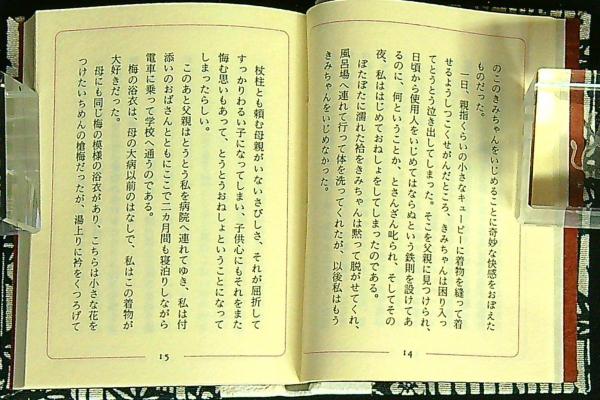 のこのきみちゃんをいじめることに奇妙な快感をおぼえた
ものだった。
一日、親指くらいの小さなキューピーに着物を縫って着
せるようしつこくせがんだところ、きみちゃんは困り入っ
てとうとう泣き出してしまった。そこを父親に見つけられ、
日頃から使用人をいじめてはならぬという鉄則を設けてあ
るのに、何ということか、とさんざん叱られ、そしてその
夜、私ははじめておねしょをしてしまったのである。
ぼたぼたに濡れた袷をきみちゃんは黙って脱がせてくれ、
風呂場へ連れて行って体を洗ってくれたが、以後私はもう
きみちゃんをいじめなかった。
14
杖柱とも頼む母親がいないさびしさ、それが屈折して
すっかりわるい子になってしまい、子供心にもそれをまた
悔む思いもあって、とうとうおねしょということになって
しまったらしい。
このあと父親はとうとう私を病院へ連れてゆき、私は付
添いのおばさんとともにここで二カ月間も寝泊りしながら
電車に乗って学校へ通うのである。
梅の浴衣は、母の大病以前のはなしで、私はこの着物が
大好きだった。
母にも同じ梅の模様の浴衣があり、こちらは小さな花を
つけたいちめんの槍梅だったが、湯上りに衿をくつろげて
15